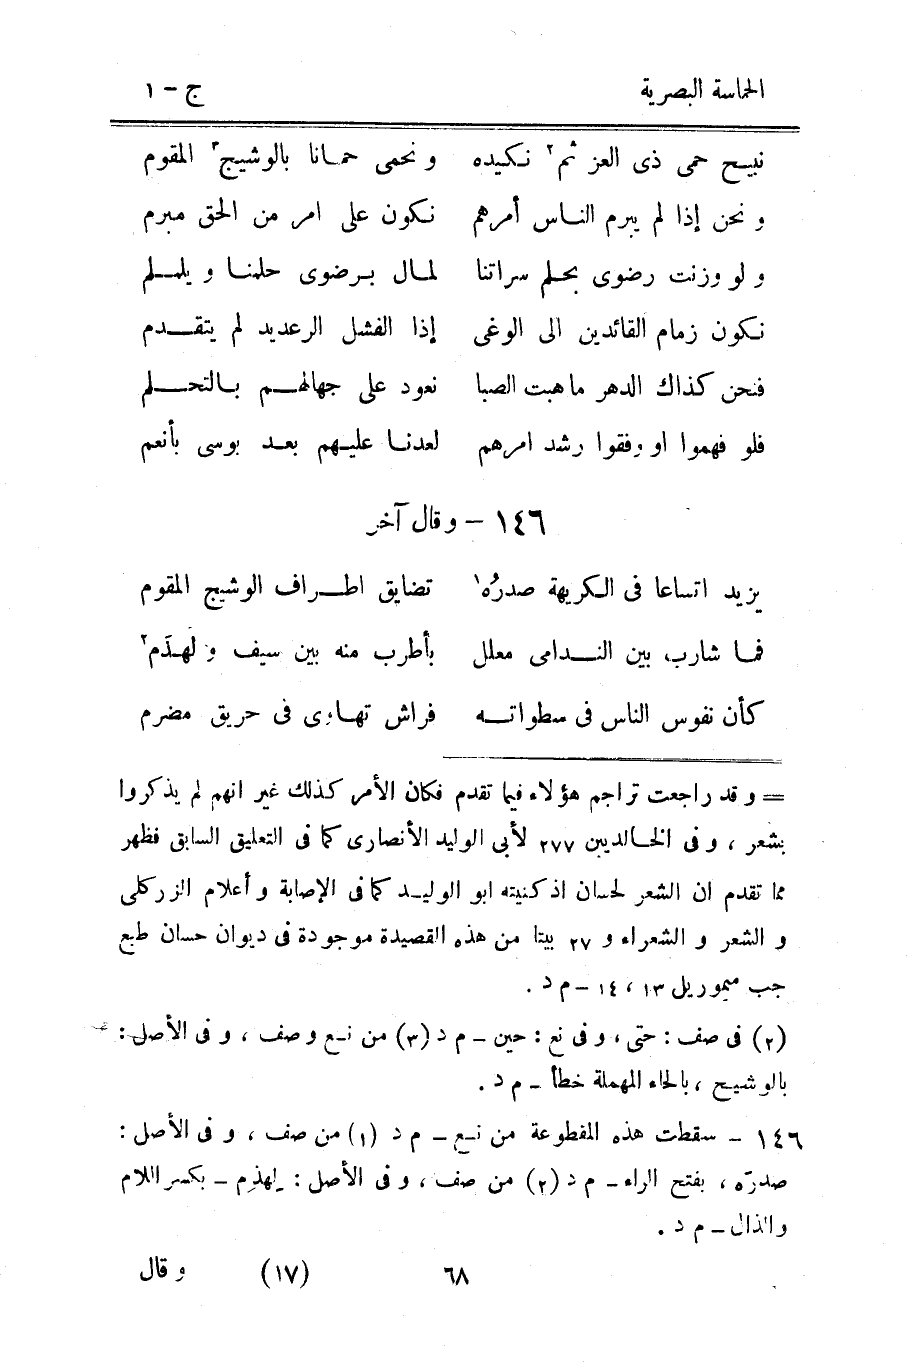 الحماسة البصرية ج – ١
نبيح حمى ذى العز ثم٢ نكيده و نحمى حمانا بالوشيج٣ المقوم
و نحن إذا لم يبرم الناس أمرهم نكون على امر من الحق مبرم
و لو وزنت رضوى بحلم سراتنا لمال برضوى حلمنا و يلملم
نكون زمام القائدين الى الوغى إذا الفشل الرعديد لم يتقدم
فنحن كذاك الدهر ما هبت الصبا نعود على جهالهم بالتحلم
فلو فهموا او وفقوا رشد امرهم لعدنا عليهم بعد بوسى بأنعم
١٤٦ – و قال آخر
يزيد اتساعا فى الكريهة صدرُه١ تضايق اطراف الوشيج المقوم
فما شارب بين الندامى معلل بأطرب منه بين سيف و لَهذَم٢
كأن نفوس الناس فى سطواته فراش تهادى فى حريق مضرم
= و قد راجعت تراجم هؤلاء فيما تقدم فكان الأمر كذلك غير انهم لم يذكروا
بشعر ، و فى الخالديين ٢٧٧ لأبى الوليد الأنصارى كما فى التعليق السابق فظهر
مما تقدم ان الشعر لحسان اذ كنيته ابو الوليد كما فى الإصابة و أعلام الزركلى
و الشعر و الشعراء و ٢٧ بيتا من هذه القصيدة موجودة فى ديوان حسان طبع
جب ميموريل ١٣ ، ١٤ – م د .
(٢) فى صف : حتى ، و فى نع : حين – م د (٣) من نع و صف ، و فى الأصل :
بالوشيح ، بالحاء المهملة خطأ – م د .
١٤٦ – سقطت هذه المقطوعة من نع – م د (١) من صف ، و فى الأصل :
صدرَه ، بفتح الراء – م د (٢) من صف ، و فى الأصل : لِهذِم – بكسر اللام
والذال – م د .
٦٨ (١٧) و قال